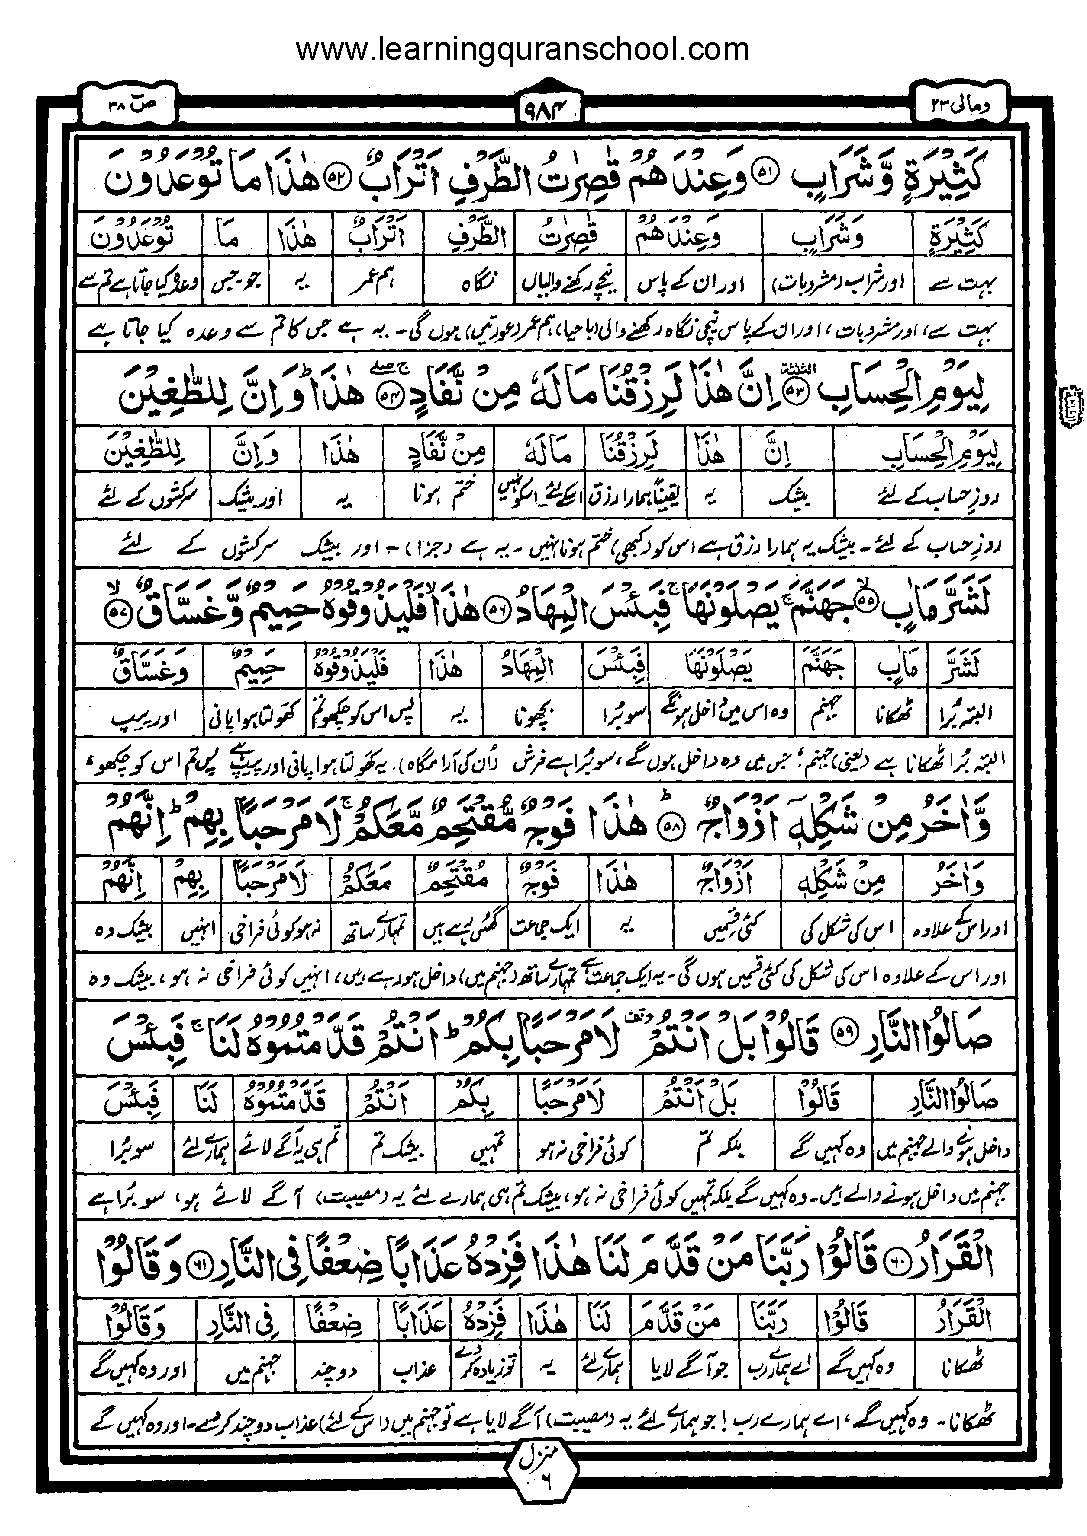 www.learningquranschool.com
وما لی ٢٣
٩٨٤
صٓ ٣٨
كَثِيْرَةٍ وَّشَرَابٍ ﴿٥١﴾ وَعِنْدَهُمْ قٰصِرٰتُ الطَّرْفِ اَتْرَابٌ ﴿٥٢﴾ هٰذَا مَا تُوْعَدُوْنَ
كَثِيْرَةٍ وَشَرَابٍ وَعِنْدَهُمْ قٰصِرٰتُ الطَّرْفِ اَتْرَابٌ هٰذَا مَا تُوْعَدُوْنَ
بہت سے اور شراب (مشروبات) اور ان کے پاس نیچے رکھنے والیاں نگاہ ہم عمر یہ جو۔جس وعدہ کیا جاتا ہے تم سے
بہت سے، اور مشروبات، اور ان کے پاس نیچی نگاہ رکھنے والی (باحیا) ہم عمر (عورتیں) ہوں گی۔ یہ ہے جس کا تم سے وعدہ کیا جاتا ہے
لِيَوْمِ الْحِسَابِ ﴿٥٣﴾ اِنَّ هٰذَا لَرِزْقُنَا مَا لَهٗ مِنْ نَّفَادٍ ﴿٥٤﴾ هٰذَا ؕ وَاِنَّ لِلطّٰغِيْنَ
لِيَوْمِ الْحِسَابِ اِنَّ هٰذَا لَرِزْقُنَا مَا لَهٗ مِنْ نَّفَادٍ هٰذَا وَاِنَّ لِلطّٰغِيْنَ
روزِ حساب کے لئے بیشک یہ یقیناً ہمارا رزق اسکے لئے۔اسکو نہیں ختم ہونا یہ اور بیشک سرکشوں کے لئے
روزِ حساب کے لئے۔ بیشک یہ ہمارا رزق ہے اس کو (کبھی) ختم ہونا نہیں۔ یہ ہے (جزا)۔ اور بیشک سرکشوں کے لئے
لَشَرَّ مَاٰبٍ ﴿٥٥﴾ جَهَنَّمَ ۚ يَصْلَوْنَهَا ۚ فَبِئْسَ الْمِهَادُ ﴿٥٦﴾ هٰذَا ۙ فَلْيَذُوْقُوْهُ حَمِيْمٌ وَّغَسَّاقٌ ﴿٥٧﴾
لَشَرَّ مَاٰبٍ جَهَنَّمَ يَصْلَوْنَهَا فَبِئْسَ الْمِهَادُ هٰذَا فَلْيَذُوْقُوْهُ حَمِيْمٌ وَغَسَّاقٌ
البتہ برا ٹھکانا جہنم وہ اس میں داخل ہونگے سو برا بچھونا یہ پس اس کو چکھو تم کھولتا ہوا پانی اور پیپ
البتہ برا ٹھکانا ہے (یعنی) جہنم، جس میں وہ داخل ہوں گے، سو برا ہے فرش (ان کی آرامگاہ)۔ یہ کھولتا ہوا پانی اور پیپ ہے پس تم اس کو چکھو،
وَّاٰخَرُ مِنْ شَكْلِهٖۤ اَزْوَاجٌ ؕ ﴿٥٨﴾ هٰذَا فَوْجٌ مُّقْتَحِمٌ مَّعَكُمْ ۚ لَا مَرْحَبًۢا بِهِمْ ؕ اِنَّهُمْ
وَاٰخَرُ مِنْ شَكْلِهٖۤ اَزْوَاجٌ هٰذَا فَوْجٌ مُقْتَحِمٌ مَعَكُمْ لَا مَرْحَبًا بِهِمْ اِنَّهُمْ
اور اس کے علاوہ اس کی شکل کی کئی قسمیں یہ ایک جماعت گھس رہے ہیں تمہارے ساتھ نہ ہو کوئی فراخی انہیں بیشک وہ
اور اس کے علاوہ اس کی شکل کی کئی قسمیں ہوں گی۔ یہ ایک جماعت ہے تمہارے ساتھ (جہنم میں) داخل ہو رہے ہیں، انہیں کوئی فراخی نہ ہو، بیشک وہ
صَالُوا النَّارِ ﴿٥٩﴾ قَالُوْا بَلْ اَنْتُمْ لَا مَرْحَبًۢا بِكُمْ ؕ اَنْتُمْ قَدَّمْتُمُوْهُ لَنَا ۚ فَبِئْسَ
صَالُوا النَّارِ قَالُوْا بَلْ اَنْتُمْ لَا مَرْحَبًا بِكُمْ اَنْتُمْ قَدَّمْتُمُوْهُ لَنَا فَبِئْسَ
داخل ہونے والے جہنم میں وہ کہیں گے بلکہ تم کوئی فراخی نہ ہو تمہیں بیشک تم تم ہی یہ آگے لائے ہمارے لئے سو برا
جہنم میں داخل ہونے والے ہیں۔ وہ کہیں گے بلکہ تمہیں کوئی فراخی نہ ہو، بیشک تم ہی ہمارے لئے یہ (مصیبت) آگے لائے ہو، سو برا ہے
الْقَرَارُ ﴿٦٠﴾ قَالُوْا رَبَّنَا مَنْ قَدَّمَ لَنَا هٰذَا فَزِدْهُ عَذَابًا ضِعْفًا فِى النَّارِ ﴿٦١﴾ وَقَالُوْا
الْقَرَارُ قَالُوْا رَبَّنَا مَنْ قَدَّمَ لَنَا هٰذَا فَزِدْهُ عَذَابًا ضِعْفًا فِى النَّارِ وَقَالُوْا
ٹھکانا وہ کہیں گے اے ہمارے رب جو آگے لایا ہمارے لئے یہ تو زیادہ کر دے عذاب دو چند جہنم میں اور وہ کہیں گے
ٹھکانا۔ وہ کہیں گے، اے ہمارے رب! جو ہمارے لئے یہ (مصیبت) آگے لایا ہے تو جہنم میں (اس کے لئے) عذاب دو چند کر دے۔ اور وہ کہیں گے
منزل ٦